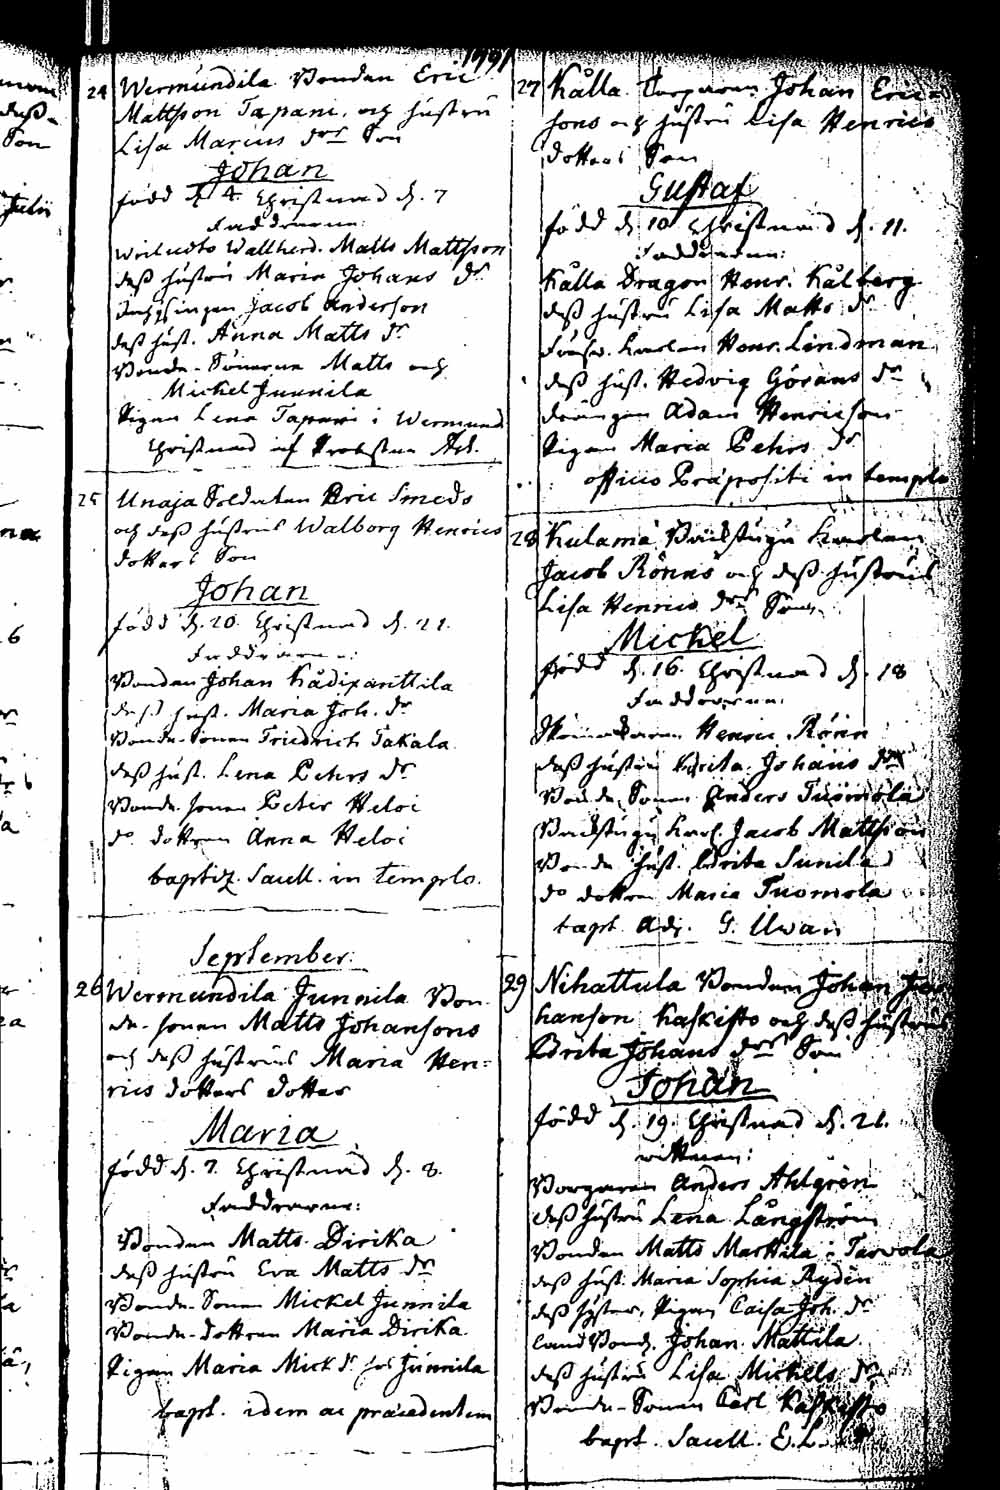 1791
24 Wermundila Bonden Eric
Mattsson Tapani, och hustru
Lisa Marcus drs Son
Johan
född d. 4. Christnad d. 7
Faddrarne:
Matts Mattsson
dess hustru Maria Johans dr
Jacob Anderson
dess hust. Anna Matts dr
Bonde-Sönerne Matts och
Mickel Junnila
Pigan Lena Tapani i Wermund.
Christnad af Probsten
25 Unaja Soldaten Eric Smeds
och dess hustrus Walborg Henrics
dotters Son
Johan
född d. 20. Christnad d. 21.
Faddrarne:
Bonden Johan Kädixänttila
dess hust. Maria Joh. dr
Bonde-Sonen Friedrich Takala
dess hust. Lena Pehrs dr
Bonde-sonen Peter Heloi
do dottren Anna Heloi
baptiz. Sacell. in templo.
September.
26 Wermundila Junnila Bon-
de-sonen Matts Johansons
och dess hustrus Maria Hen-
rics dotters dotter
Maria
född d. 7. Christnad d. 8.
Faddrarne:
Bonden Matts Dirika
dess hustru Eva Matts dr
Bonde-Sonen Mickel Junnila
Bonde-dottren Maria Dirika
Pigan Maria Mick. dr Junnila
bapt. idem ac præcedentem
27 Kålla Torparen Johan Eric-
sons och hustru Lisa Henrics
dotters Son
Gustaf
född d. 10 Christnad d. 11.
Faddrarne:
Kålla Dragon Henr. Kålberg
dess hustru Lisa Matts dr
Henr. Lindman
dess hust. Hedvig Görans dr
drängen Adam Henricson
Pigan Maria Pehrs dr
officio Præpositi in templo
28 Kulamä Backstugu Karlen
Jacob Rönns och dess hustrus
Lisa Henrics drs Son
Mickel
född d. 16. Christnad d. 18
Faddrarne:
Skomakaren Henric Rönn
dess hustru Brita Johans dr
Bonde Sonen Anders Tuomola
Backstugu Karl. Jacob Mattsson
Bonde hust. Brita Sunila
do dottren Maria Tuomola
bapt. Adj. G. Uwan
29 Nihattula Bonden Johan Jo-
hanson Kaskisto och dess hustrus
Brita Johans drs Son
Johan
född d. 19. Christnad d. 21.
wittnen:
Borgaren Anders Ahlgrén
dess hustru Lena Långström
Bonden Matts Markila i Tarvola
dess hust. Maria Sophia Rydén
dess syster, Pigan Caisa Joh. dr
Johan Mattila
dess hustru Lisa Michels dr
Bonde-Sonen Carl Kaskisto
bapt. Sacell. E. L.